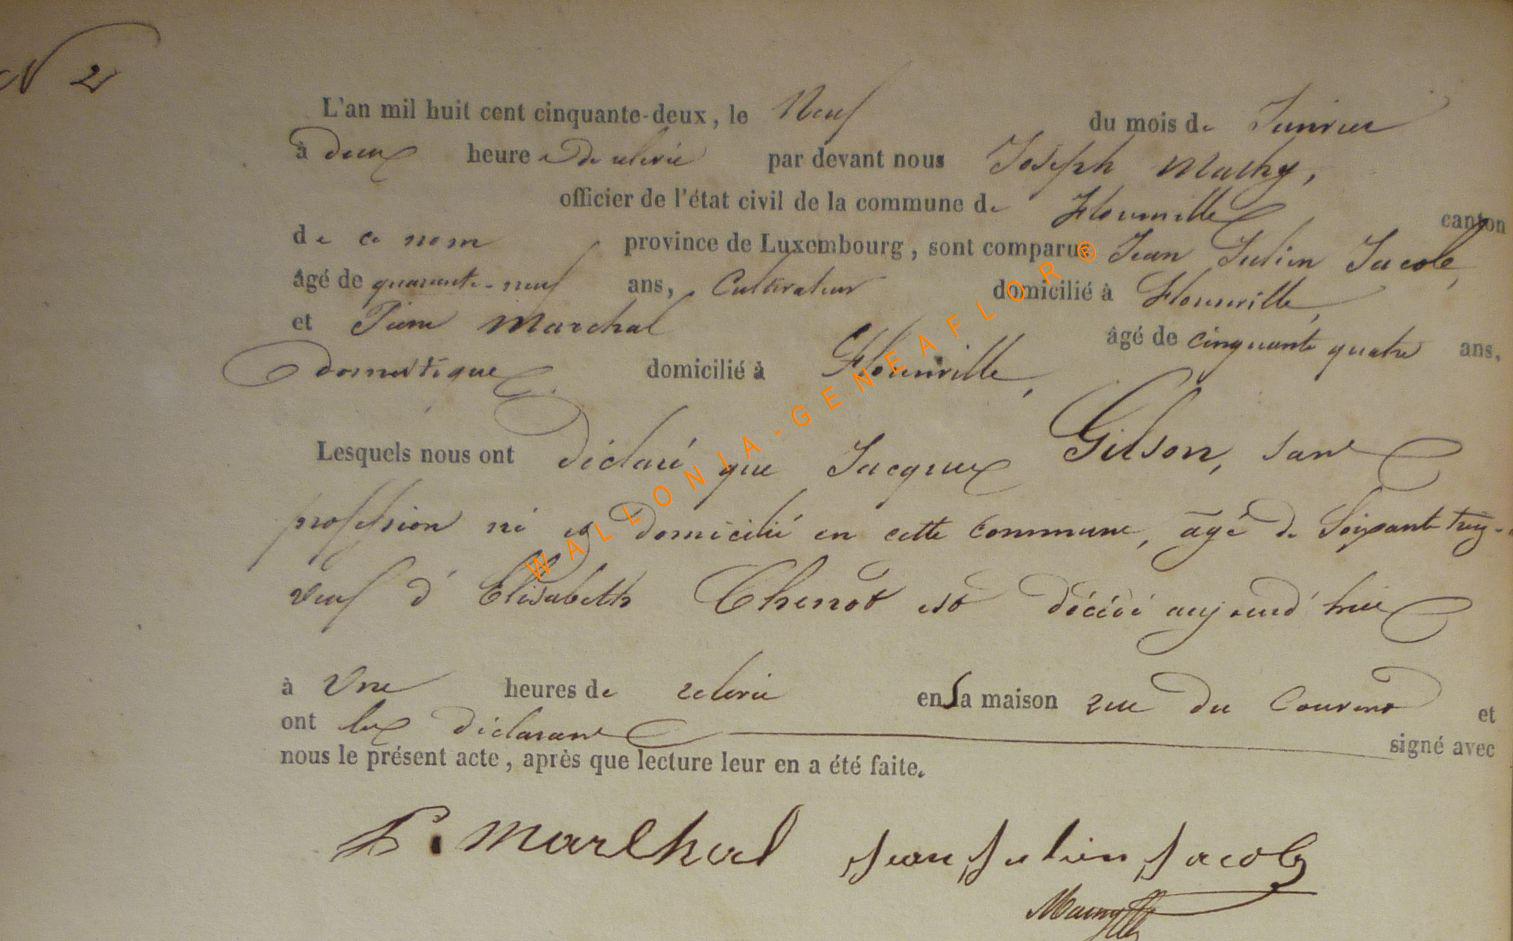 N 2
L'an mil huit cent cinquante-deux, le Neuf du mois de Janvier
à deux heures de relevée par devant nous Joseph Mathy,
officier de l'état civil de la commune de Florenville canton
de ce nom province de Luxembourg, sont comparus Jean Julien Jacob,
âgé de quarante-neuf ans, Cultivateur domicilié à Florenville,
et Pierre Marchal âgé de cinquante quatre ans,
domestique domicilié à Florenville,
Lesquels nous ont déclaré que Jacques Gilson, sans
profession né et domicilié en cette commune, âgé de Soixante
veuf d'Elisabeth Thenot est décédé aujourd'hui
à Une heures de relevée en sa maison rue du Couvent et
ont les déclarans signé avec
nous le présent acte, après que lecture leur en a été faite.
P. Marchal Jean Julien Jacob
WALLONIA-GENEAFLOR®